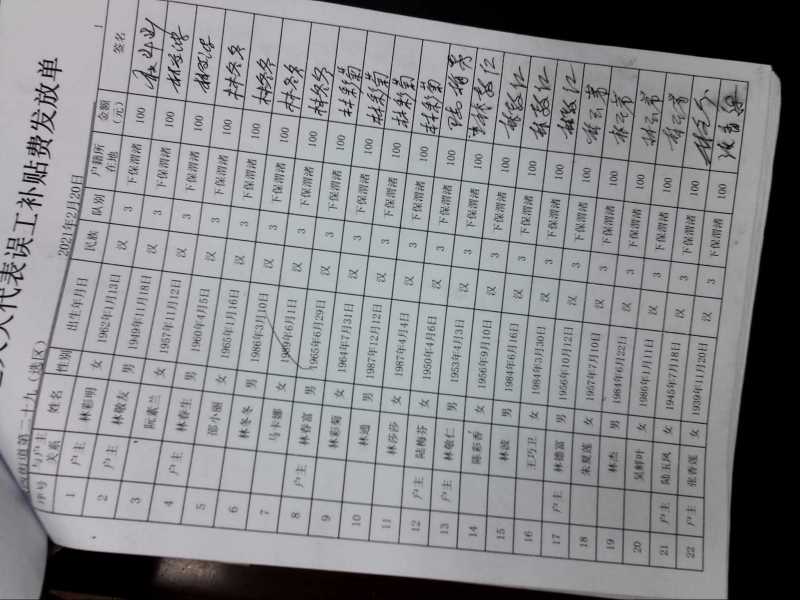 大代表误工补贴费发放单
街道第二十九（选区） 2021年2月20日
序号 与户主关系 姓名 性别 出生年月日 民族 队别 户籍所在地 金额（元） 签名
1 户主 林彩明 女 1962年1月13日 汉 3 下保渭渚 100
2 户主 林敬友 男 1949年11月18日 汉 3 下保渭渚 100
3 阮素兰 女 1957年11月12日 汉 3 下保渭渚 100
4 户主 林春生 男 1960年4月5日 汉 3 下保渭渚 100 林冬冬
5 邵小丽 女 1965年1月16日 汉 3 下保渭渚 100 林冬冬
6 林冬冬 男 1986年3月10日 汉 3 下保渭渚 100 林冬冬
7 马卡娜 女 1989年6月1日 汉 3 下保渭渚 100 林冬冬
8 户主 林春富 男 1965年6月29日 汉 3 下保渭渚 100 林彩菊
9 林彩菊 女 1964年7月31日 汉 3 下保渭渚 100 林彩菊
10 林通 男 1987年12月12日 汉 3 下保渭渚 100 林彩菊
11 林莎莎 女 1987年4月4日 汉 3 下保渭渚 100 林彩菊
12 户主 陆梅芬 女 1950年4月6日 汉 3 下保渭渚 100 陆梅芬
13 户主 林敬仁 男 1953年4月3日 汉 3 下保渭渚 100 林敬仁
14 陈彩香 女 1956年9月10日 汉 3 下保渭渚 100 林敬仁
15 林波 男 1984年6月16日 汉 3 下保渭渚 100 林敬仁
16 王巧卫 女 1984年3月30日 汉 3 下保渭渚 100 林敬仁
17 户主 林德富 男 1956年10月12日 汉 3 下保渭渚 100
18 朱夏莲 女 1957年7月10日 汉 3 下保渭渚 100
19 林杰 男 1984年6月22日 汉 3 下保渭渚 100
20 吴鲜叶 女 1986年1月11日 汉 3 下保渭渚 100
21 户主 陆玉凤 女 1945年7月18日 汉 3 下保渭渚 100
22 户主 张香莲 女 1939年11月20日 汉 3 下保渭渚 100